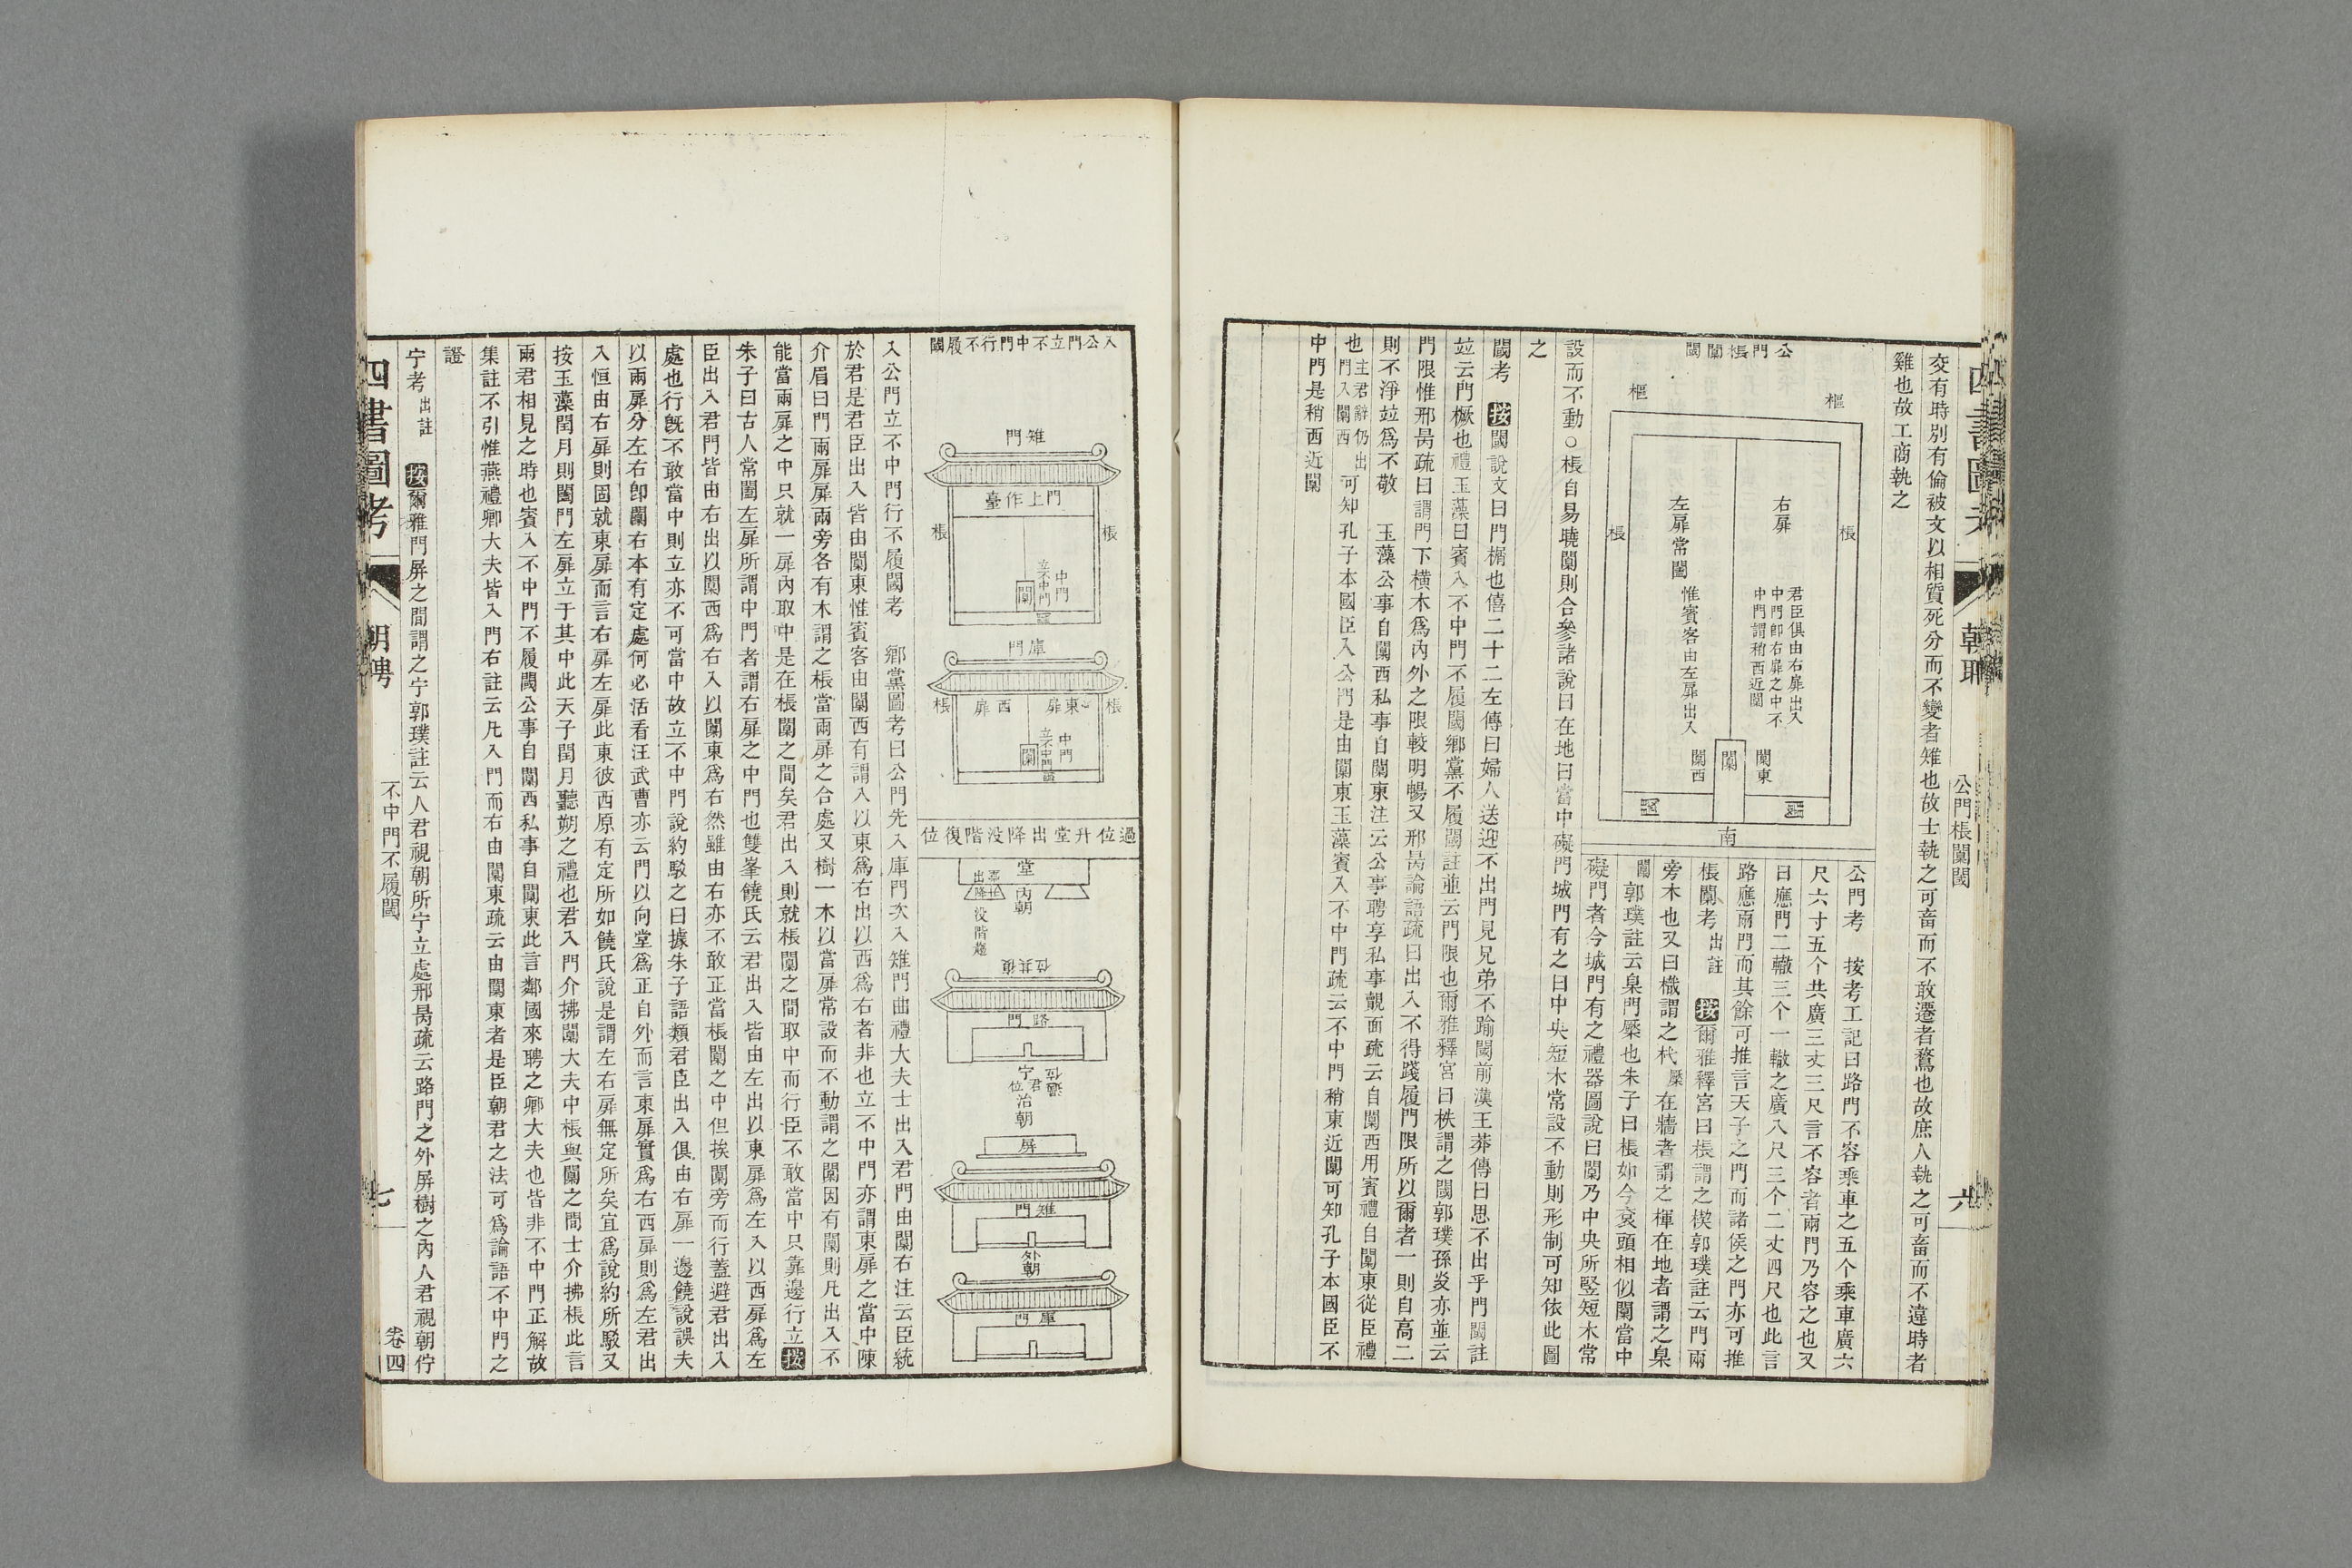 交有時別有倫被文以相質死分而不變者雉也故士執之可畜而不敢遷者鶩也故庶人執之可畜而不違時者
雞也故工商執之
公門棖闑閾
樞
樞
棖
棖
右扉
左扉常闔
君臣俱由右扉出入
中門即右扉之中不
中門謂稍西近闑
惟賓客由左扉出入
闑東
闑
闑西
閾
閾
南
公門考　按考工記曰路門不容乘車之五个乘車廣六
尺六寸五个共廣三丈三尺言不容者兩門乃容之也又
曰應門二轍三个一轍之廣八尺三个二丈四尺也此言
路應兩門而其餘可推言天子之門而諸侯之門亦可推
棖闑考出註　按爾雅釋宮曰棖謂之楔郭璞註云門兩
旁木也又曰樴謂之杙橜在牆者謂之楎在地者謂之臬
闑郭璞註云臬門橜也朱子曰棖如今袞頭相似闑當中
礙門者今城門有之禮器圖說曰闑乃中央所竪短木常
設而不動○棖自易曉闑則合參諸說曰在地曰當中礙門城門有之曰中央短木常設不動則形制可知依此圖
之
閾考　按閾說文曰門榍也僖二十二左傳曰婦人送迎不出門見兄弟不踰閾前漢王莽傳曰思不出乎門閾註
竝云門橛也禮玉藻曰賓入不中門不履閾鄉黨不履閾註並云門限也爾雅釋宮曰柣謂之閾郭璞孫炎亦並云
門限惟邢昺疏曰謂門下橫木爲內外之限較明暢又邢昺論語疏曰出入不得踐履門限所以爾者一則自高二
則不淨竝爲不敬　玉藻公事自闑西私事自闑東注云公事聘享私事覿面疏云自闑西用賓禮自闑東從臣禮
也主君辭仍出門入闑西可知孔子本國臣入公門是由闑東玉藻賓入不中門疏云不中門稍東近闑可知孔子本國臣不
中門是稍西近闑
四書圖考
朝聘
公門棖闑閾
六
入公門立不中門行不履閾
雉門
門上作臺
棖
棖
中門
立不中門
闑
閾
庫門
棖
東扉
西扉
棖
中門
立不中門
闑
閾
過位升堂出降没階復位
堂
升堂
出降
內朝
没階趨
復其位
路門
宁
君位
過位
治朝
屏
雉門
外朝
庫門
入公門立不中門行不履閾考　鄉黨圖考曰公門先入庫門次入雉門曲禮大夫士出入君門由闑右注云臣統
於君是君臣出入皆由闑東惟賓客由闑西有謂入以東爲右出以西爲右者非也立不中門亦謂東扉之當中陳
介眉曰門兩扉扉兩旁各有木謂之棖當兩扉之合處又樹一木以當扉常設而不動謂之闑因有闑則凡出入不
能當兩扉之中只就一扉內取中是在棖闑之間矣君出入則就棖闑之間取中而行臣不敢當中只靠邊行立按
朱子曰古人常闔左扉所謂中門者謂右扉之中門也雙峯饒氏云君出入皆由左出以東扉爲左入以西扉爲左
臣出入君門皆由右出以闑西爲右入以闑東爲右然雖由右亦不敢正當棖闑之中但挨闑旁而行蓋避君出入
處也行既不敢當中則立亦不可當中故立不中門說約駁之曰據朱子語類君臣出入俱由右扉一邊饒說誤夫
以兩扉分左右卽闑右本有定處何必活看汪武曹亦云門以向堂爲正自外而言東扉實爲右西扉則爲左君出
入恒由右扉則固就東扉而言右扉左扉此東彼西原有定所如饒氏說是謂左右扉無定所矣宜爲說約所駁又
按玉藻閏月則闔門左扉立于其中此天子閏月聽朔之禮也君入門介拂闑大夫中棖與闑之間士介拂棖此言
兩君相見之時也賓入不中門不履閾公事自闑西私事自闑東此言鄰國來聘之卿大夫也皆非不中門正解故
集註不引惟燕禮卿大夫皆入門右註云凡入門而右由闑東疏云由闑東者是臣朝君之法可爲論語不中門之
證
宁考出註　按爾雅門屏之間謂之宁郭璞註云人君視朝所宁立處邢昺疏云路門之外屏樹之內人君視朝佇
四書圖考
朝聘
不中門不履閾
七
卷四